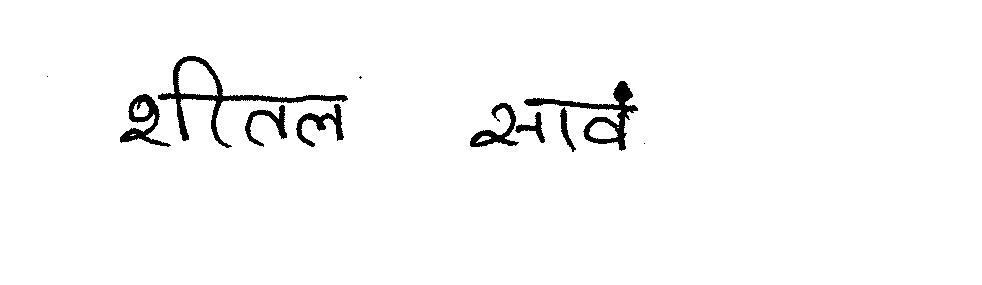 शीतल सावं